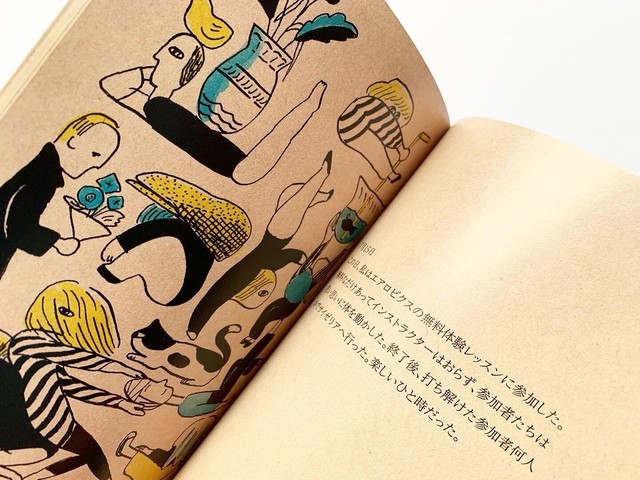 月15日
この日、私はエアロビクスの無料体験レッスンに参加した。
無料なだけあってインストラクターはおらず 参加者たちは
思い思いに体を動かした。終了後、打ち解けた参加者何人
サイゼリアへ行った。楽しいひと時だった。